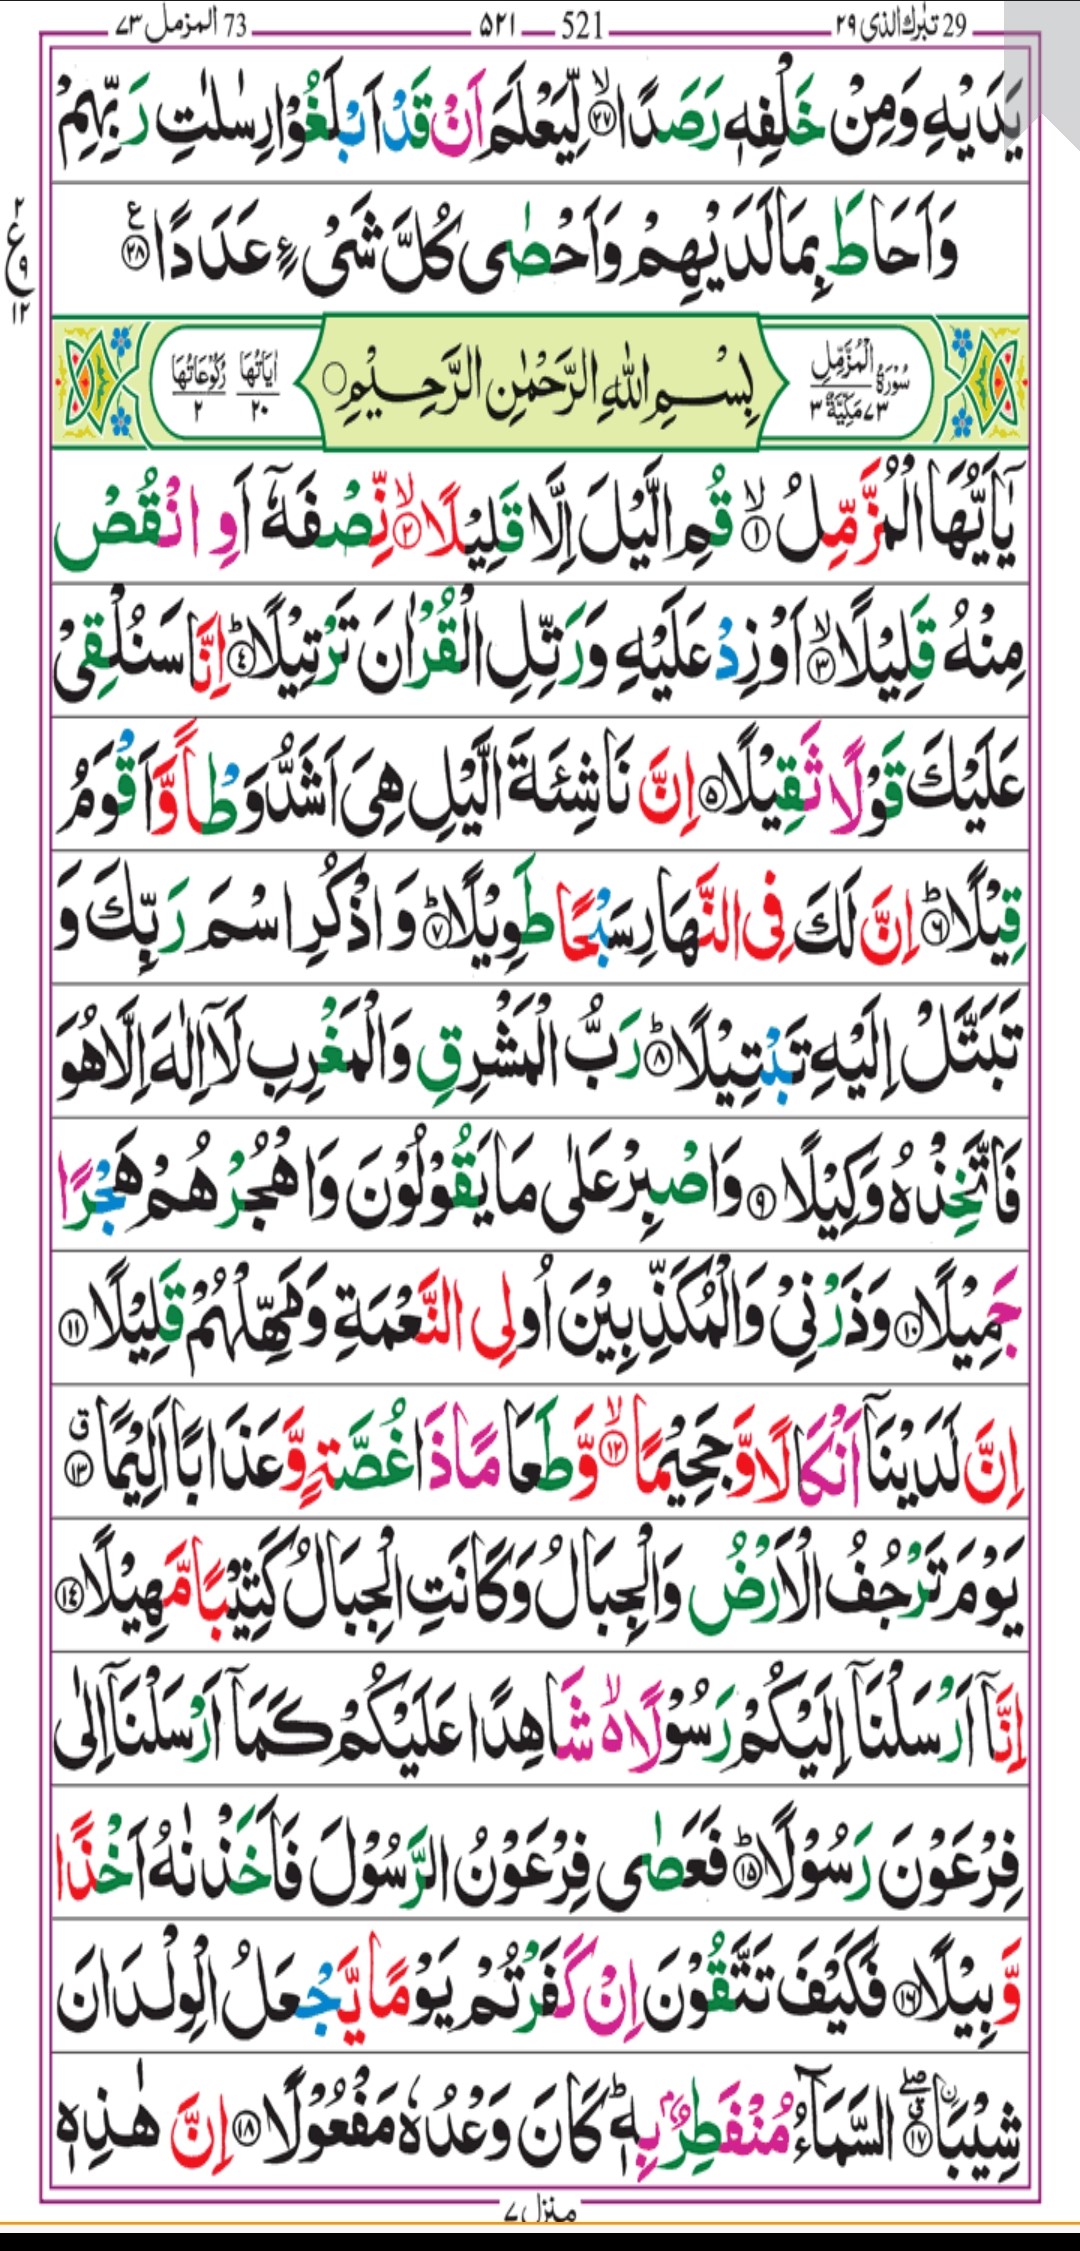 29 تبٰرك الذی ٢٩ — 521 — ٥٢١ — 73 المزمل ٧٣
يَدَيْهِ وَمِنْ خَلْفِهٖ رَصَدًا ۙ﴿٢٧﴾ لِّيَعْلَمَ اَنْ قَدْ اَبْلَغُوْا رِسٰلٰتِ رَبِّهِمْ
وَاَحَاطَ بِمَا لَدَيْهِمْ وَاَحْصٰى كُلَّ شَىْءٍ عَدَدًا ﴿٢٨﴾ ع
٢ ع ٩ ١٢
سُوْرَةُ الْمُزَّمِّلِ ٧٣ مَكِّيَّةٌ ٣ بِسْمِ اللّٰهِ الرَّحْمٰنِ الرَّحِيْمِ اٰيَاتُهَا ٢٠ رُكُوْعَاتُهَا ٢
يٰۤاَيُّهَا الْمُزَّمِّلُ ۙ﴿١﴾ قُمِ الَّيْلَ اِلَّا قَلِيْلًا ۙ﴿٢﴾ نِّصْفَهٗۤ اَوِ انْقُصْ
مِنْهُ قَلِيْلًا ۙ﴿٣﴾ اَوْ زِدْ عَلَيْهِ وَرَتِّلِ الْقُرْاٰنَ تَرْتِيْلًا ؕ﴿٤﴾ اِنَّا سَنُلْقِىْ
عَلَيْكَ قَوْلًا ثَقِيْلًا ﴿٥﴾ اِنَّ نَاشِئَةَ الَّيْلِ هِىَ اَشَدُّ وَطْاً وَّاَقْوَمُ
قِيْلًا ؕ﴿٦﴾ اِنَّ لَكَ فِى النَّهَارِ سَبْحًا طَوِيْلًا ؕ﴿٧﴾ وَاذْكُرِ اسْمَ رَبِّكَ وَ
تَبَتَّلْ اِلَيْهِ تَبْتِيْلًا ؕ﴿٨﴾ رَبُّ الْمَشْرِقِ وَالْمَغْرِبِ لَاۤ اِلٰهَ اِلَّا هُوَ
فَاتَّخِذْهُ وَكِيْلًا ﴿٩﴾ وَاصْبِرْ عَلٰى مَا يَقُوْلُوْنَ وَاهْجُرْهُمْ هَجْرًا
جَمِيْلًا ﴿١٠﴾ وَذَرْنِىْ وَالْمُكَذِّبِيْنَ اُولِى النَّعْمَةِ وَمَهِّلْهُمْ قَلِيْلًا ﴿١١﴾
اِنَّ لَدَيْنَاۤ اَنْكَالًا وَّجَحِيْمًا ۙ﴿١٢﴾ وَّطَعَامًا ذَا غُصَّةٍ وَّعَذَابًا اَلِيْمًا ﴿١٣﴾ ق
يَوْمَ تَرْجُفُ الْاَرْضُ وَالْجِبَالُ وَكَانَتِ الْجِبَالُ كَثِيْبًا مَّهِيْلًا ﴿١٤﴾
اِنَّاۤ اَرْسَلْنَاۤ اِلَيْكُمْ رَسُوْلًا ۙ۬ شَاهِدًا عَلَيْكُمْ كَمَاۤ اَرْسَلْنَاۤ اِلٰى
فِرْعَوْنَ رَسُوْلًا ؕ﴿١٥﴾ فَعَصٰى فِرْعَوْنُ الرَّسُوْلَ فَاَخَذْنٰهُ اَخْذًا
وَّبِيْلًا ﴿١٦﴾ فَكَيْفَ تَتَّقُوْنَ اِنْ كَفَرْتُمْ يَوْمًا يَّجْعَلُ الْوِلْدَانَ
شِيْبَاۨ ۖ ۗ﴿١٧﴾ السَّمَآءُ مُنْفَطِرٌۢ بِهٖ ؕ كَانَ وَعْدُهٗ مَفْعُوْلًا ﴿١٨﴾ اِنَّ هٰذِهٖ
منزل ٧